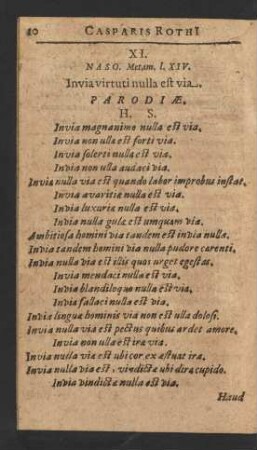 10 CASPARIS ROTHI
XI.
NASO. Metam. l. XIV.
Invia virtuti nulla est via.
PARODIÆ.
H. S.
Invia magnanimo nulla est via.
Invia non ulla est forti via.
Invia solerti nulla est via.
Invia non ulla audaci via.
Invia nulla via est quando labor improbus instat.
Invia avaritiæ nulla est via.
Invia luxuriæ nulla est via.
Invia nulla gulæ est umquam via.
Ambitiosa homini via tandem est invia nulla.
Invia tandem homini via nulla pudore carenti.
Invia nulla via est illis quos urget egestas.
Invia mendaci nulla est via.
Invia blandiloquo nulla est via.
Invia fallaci nulla est via.
Invia linguæ hominis via non est ulla dolosi.
Invia nulla via est pectus quibus ardet amore.
Invia non ulla est ira via.
Invia nulla via est ubi cor exæstuat ira.
Invia nulla via est, vindictæ ubi dira cupido.
Invia vindictæ nulla est via.
Haud